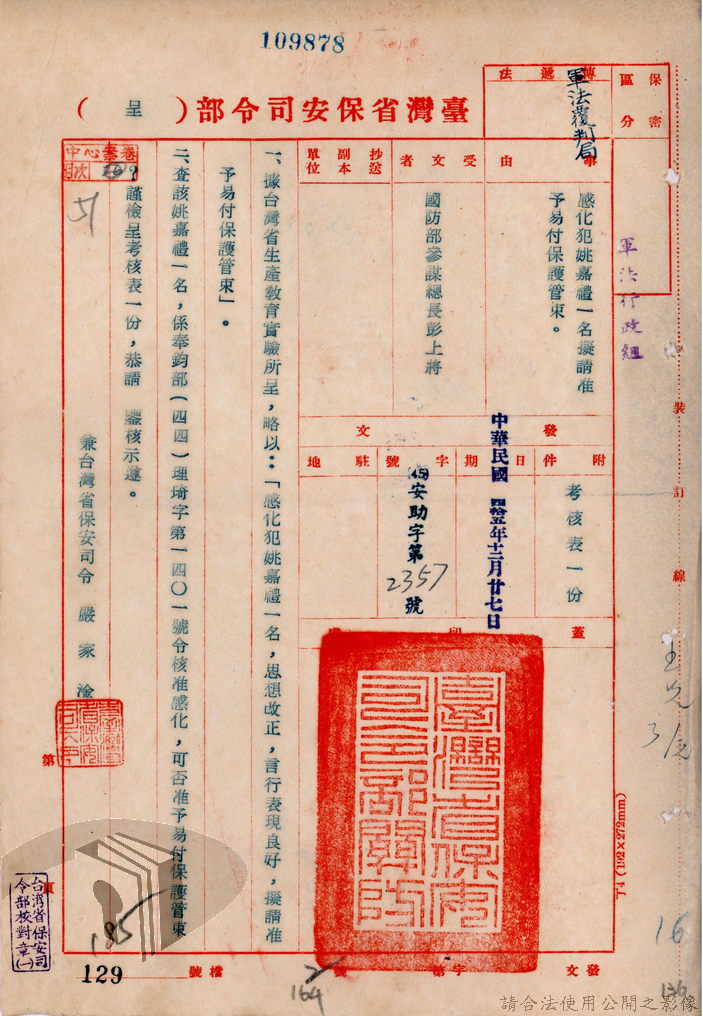 109878
臺灣省保安司令部（呈）
保密區分
傳遞法
軍法覆判局
軍法行政組
事由
感化犯姚嘉禮一名擬請准
予易付保護管束。
受文者
國防部參謀總長彭上將
抄送副本單位
發文
附件
考核表一份
日期
中華民國四十五年十二月廿七日
字號
(45)安助字第2357號
駐地
蓋印
臺灣省保安司令部關防
一、據台灣省生產教育實驗所呈，略以：「感化犯姚嘉禮一名，思想改正，言行表現良好，擬請准
予易付保護管束」。
二、查該姚嘉禮一名，係奉鈞部(四四)理琦字第一四〇一號令核准感化，可否准予易付保護管束
？謹檢呈考核表一份，恭請　鑒核示遵。
兼台灣省保安司令　嚴家淦
中心案卷
目次
第
頁
台灣省保安司令部校對章(一)
185
129
檔號
發文　字第　號
2
164
裝訂線
丁4 (192×272mm)
16
136
請合法使用公開之影像